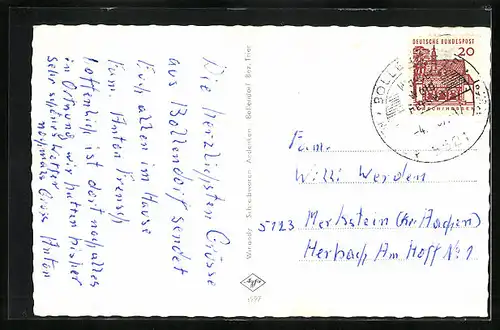 Die herzlichsten Grüsse
aus Bollendorf sendet
Euch allen im Hause
Fam. Anton Frensch
Hoffentlich ist dort noch alles
in Ordnung wir hatten bisher
sehr schönes Wetter
nochmals Grüsse Anton
Schreibwaren - Andenken - Bollendorf Bez. Trier
DEUTSCHE BUNDESPOST
20
BOLLE
Fam.
Willi Werden
5123 Merkstein (Kr. Aachen)
Herbach Am Hoff No 1